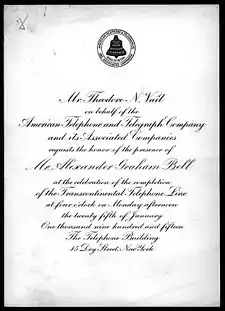 Mr. Theodore N. Vail
on behalf of the
American Telephone and Telegraph Company
and its Associated Companies
requests the honor of the presence of
Mr. Alexander Graham Bell
at the celebration of the completion
of the Transcontinental Telephone Line
at four o'clock on Monday afternoon
the twenty fifth of January
One thousand nine hundred and fifteen
The Telephone Building
15 Dey Street, New York